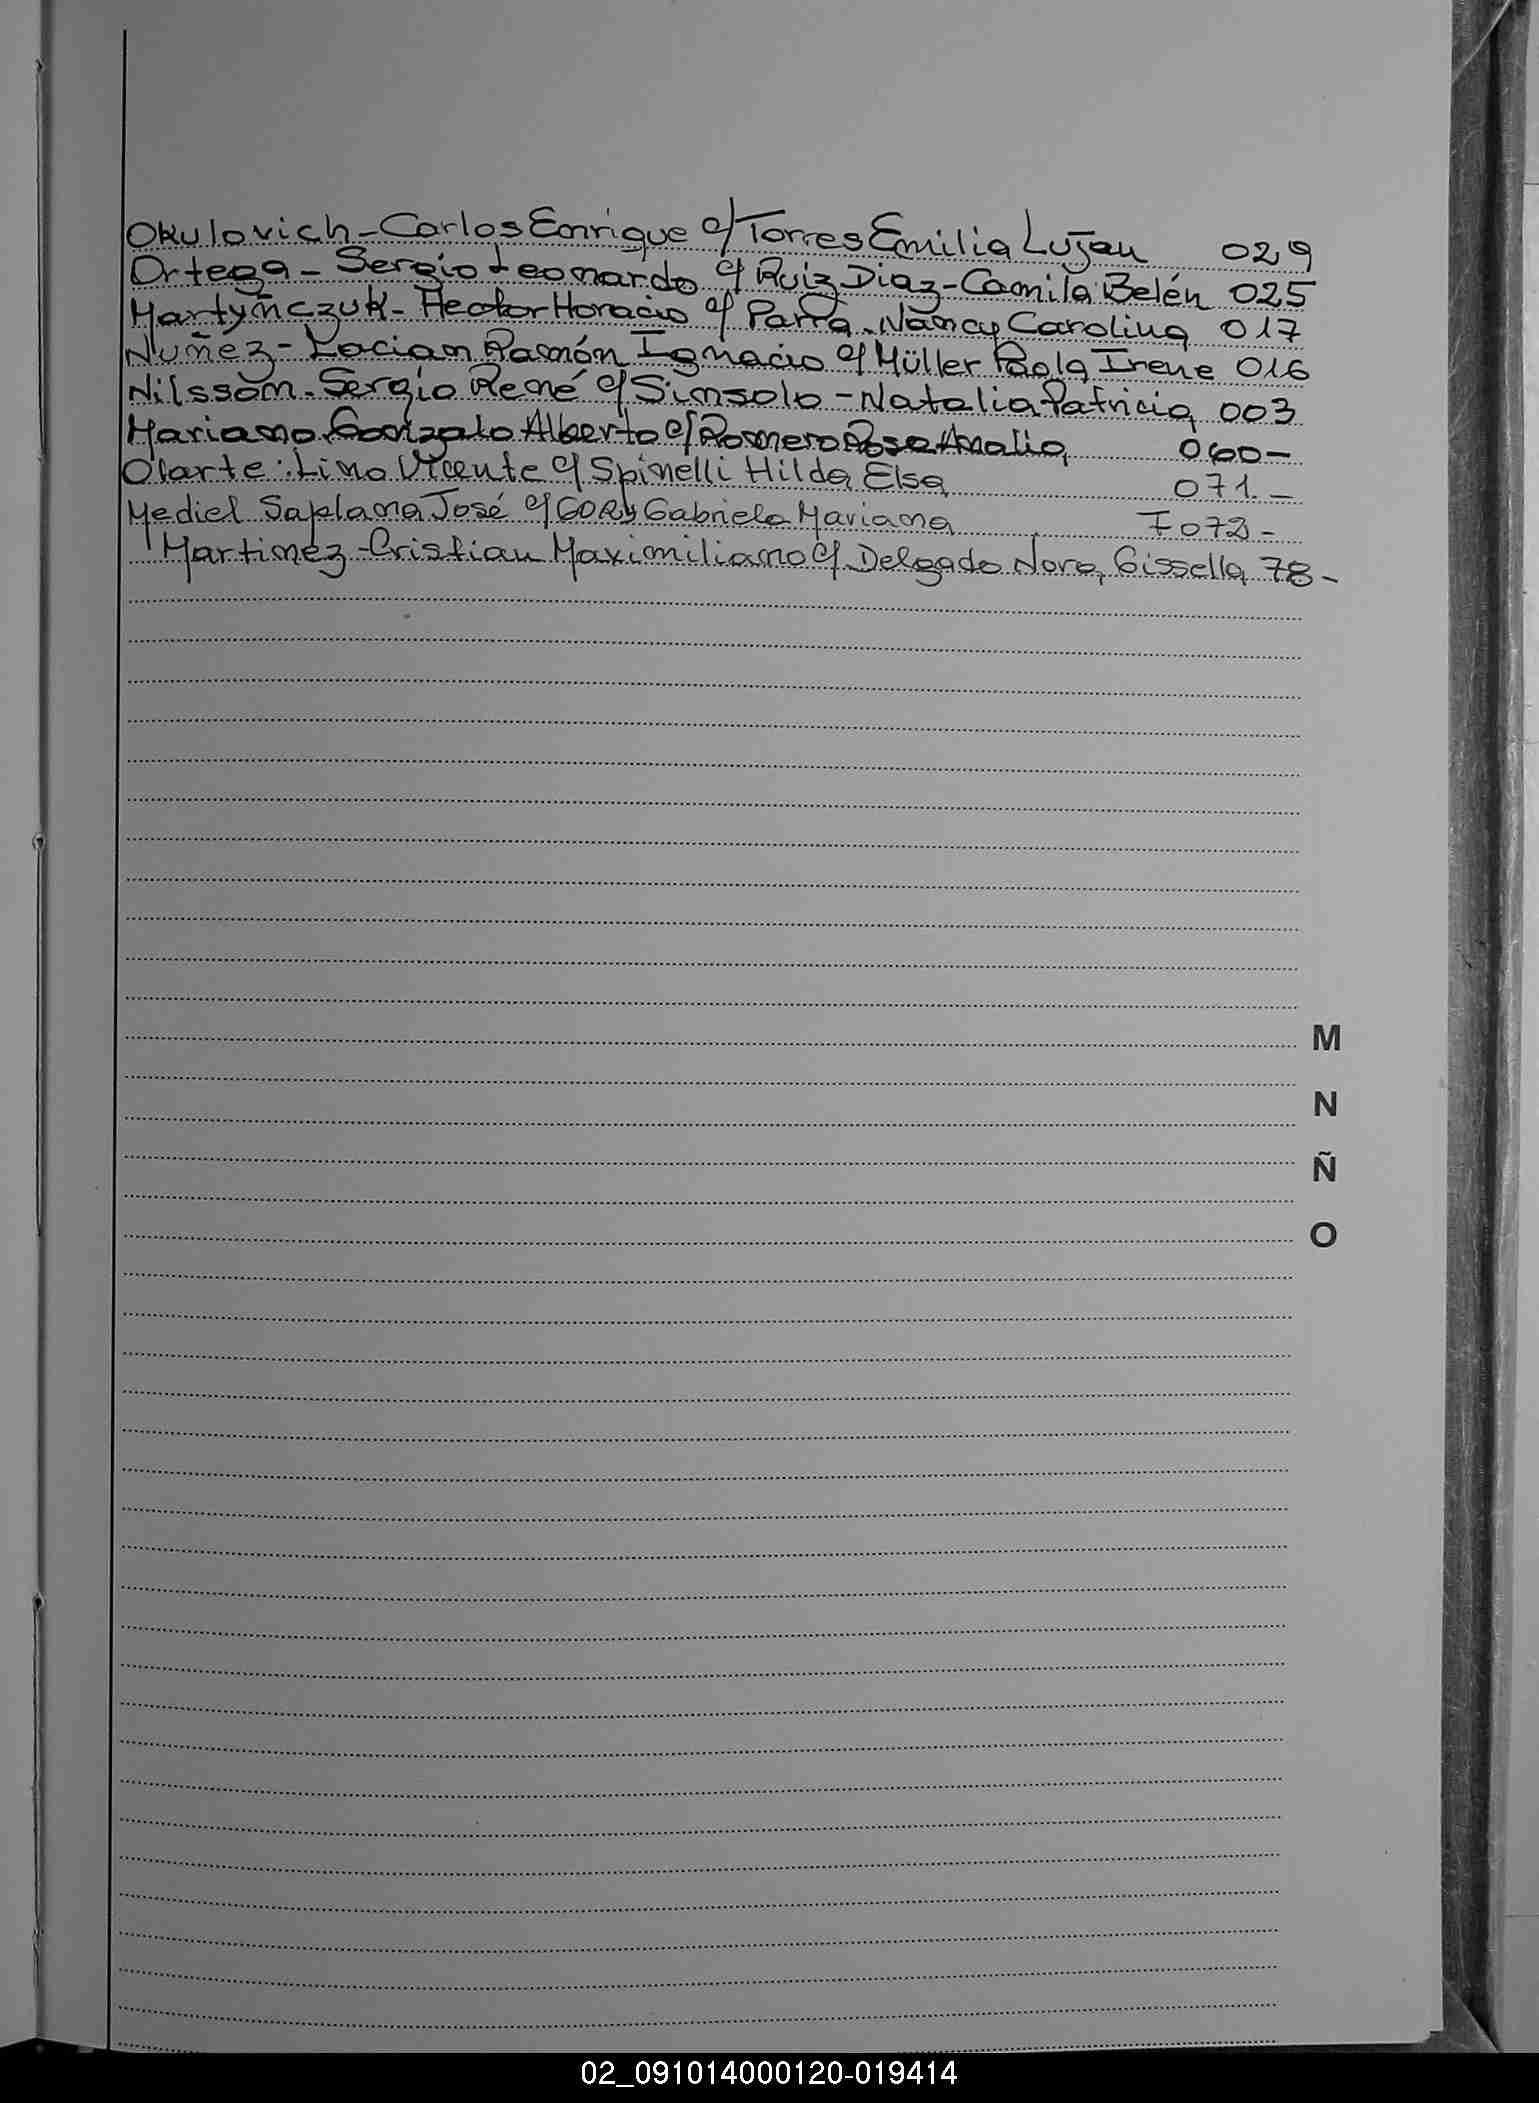 Okulovich-Carlos Enrique c/ Torres Emilia Luján 029
Ortega - Sergio Leonardo c/ Ruiz Diaz-Camila Belén 025
Martyñczuk- Hector Horacio c/ Parra-Nancy Carolina 017
Nuñez - Locian Ramón Ignacio c/ Müller Paola Irene 016
Nilsson-Sergio René c/ Simsolo - Natalia Patricia 003
Mariano Gonzalo Alberto c/ Romero Rosa Amalia 060-
Olarte: Lino Vicente c/ Spinelli Hilda Elsa 071.-
Mediel Saplana José c/ Gory Gabriela Mariana F072-
Martinez-Cristian Maximiliano c/ Delgado Nora Gissella 78-
M
N
Ñ
O
02_091014000120-019414